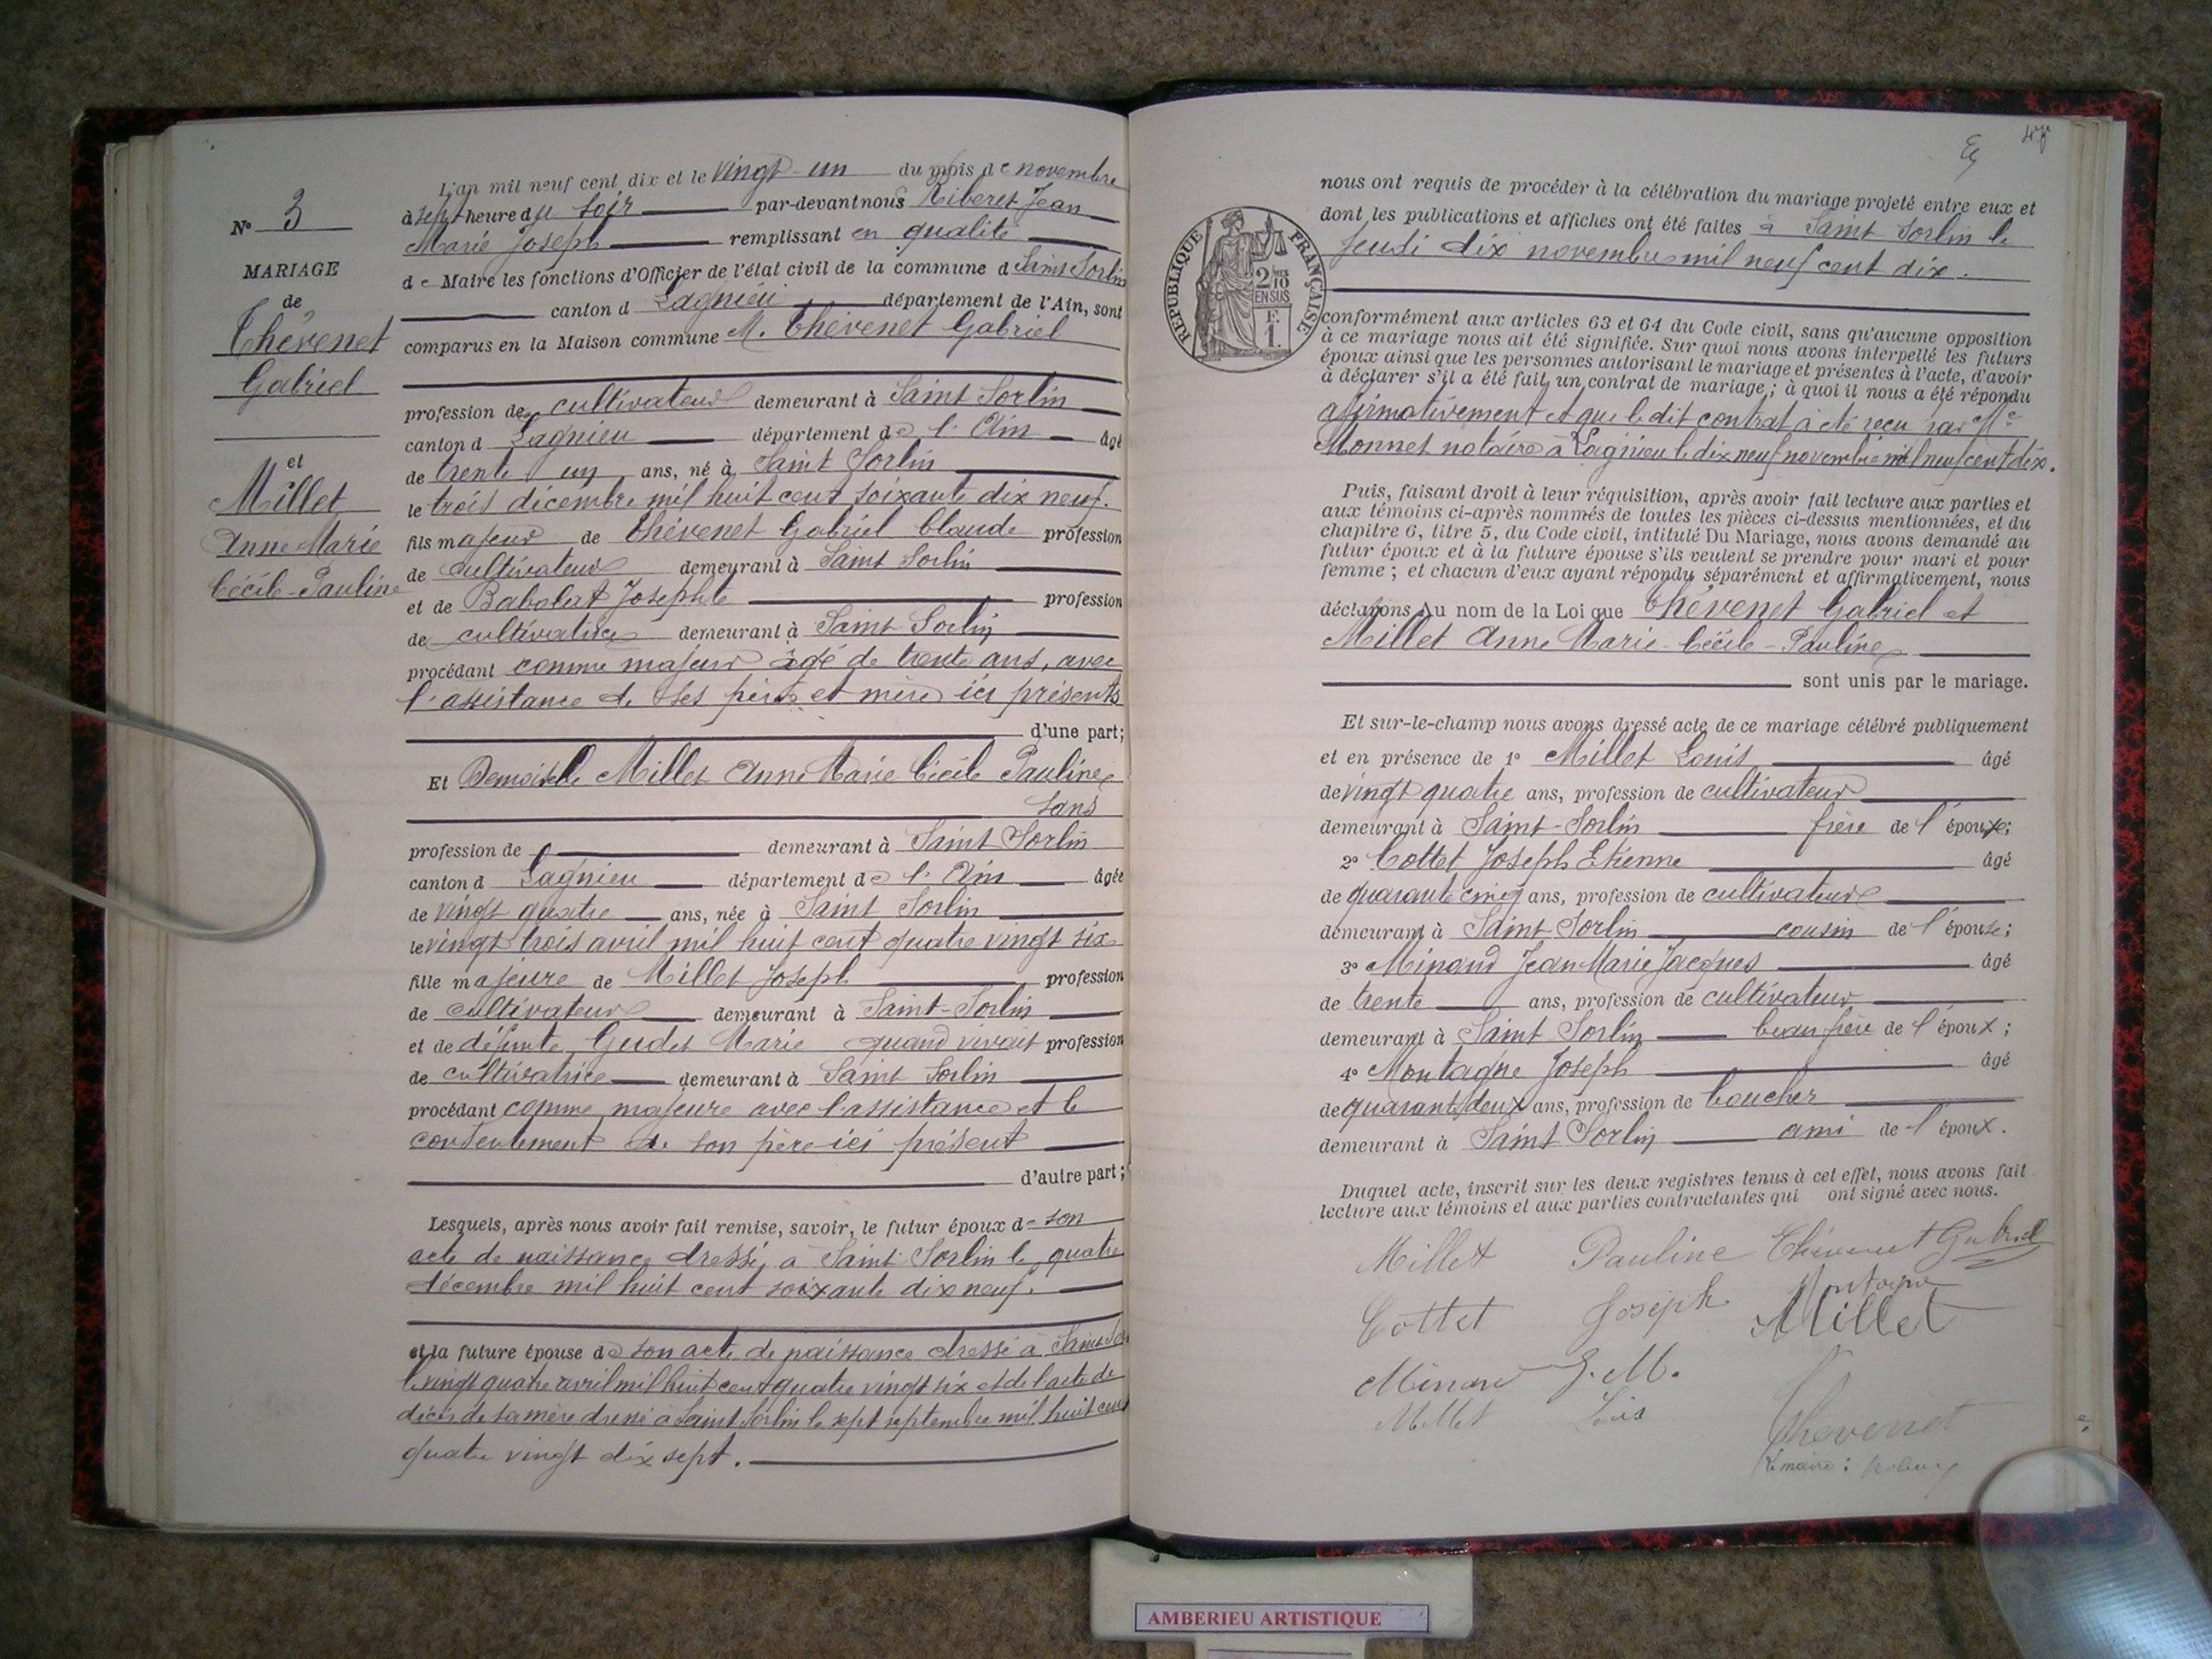 N° 3
MARIAGE
de
Thévenet
Gabriel
et
Millet
Anne Marie
Cécile-Pauline
L'an mil neuf cent dix et le vingt-un du mois de novembre
à sept heure du soir par-devant nous Riberet Jean
Marie Joseph remplissant en qualité
de Maire les fonctions d'Officier de l'état civil de la commune d Saint Sorlin
canton d Lagnieu département de l'Ain, sont
comparus en la Maison commune M. Thévenet Gabriel
profession de cultivateur demeurant à Saint Sorlin
canton d Lagnieu département de l'Ain âgé
de trente un ans, né à Saint Sorlin
le trois décembre mil huit cent soixante dix neuf.
fils majeur de Thévenet Gabriel Claude profession
de cultivateur demeurant à Saint Sorlin
et de Babolat Josephte profession
de cultivatrice demeurant à Saint Sorlin
procédant comme majeur âgé de trente ans, avec
l'assistance de ses père et mère ici présents
d'une part;
Et Demoiselle Millet Anne Marie Cécile Pauline
sans
profession de demeurant à Saint Sorlin
canton d Lagnieu département de l'Ain âgée
de vingt quatre ans, née à Saint Sorlin
le vingt trois avril mil huit cent quatre vingt six
fille majeure de Millet Joseph profession
de cultivateur demeurant à Saint-Sorlin
et de défunte Gudet Marie quand vivait profession
de cultivatrice demeurant à Saint Sorlin
procédant comme majeure avec l'assistance et le
consentement de son père ici présent
d'autre part;
Lesquels, après nous avoir fait remise, savoir, le futur époux de son
acte de naissance dressé, à Saint Sorlin le quatre
décembre mil huit cent soixante dix neuf.
et la future épouse de son acte de naissance dressé à Saint
le vingt quatre avril mil huit cent quatre vingt six et de l'acte de
décès de sa mère dressé à Saint Sorlin le sept septembre mil huit cent
quatre vingt dix sept.
REPUBLIQUE FRANÇAISE
2/10 EN SUS
F. 1.
nous ont requis de procéder à la célébration du mariage projeté entre eux et
dont les publications et affiches ont été faites à Saint Sorlin le
Jeudi dix novembre mil neuf cent dix.
conformément aux articles 63 et 64 du Code civil, sans qu'aucune opposition
à ce mariage nous ait été signifiée. Sur quoi nous avons interpellé les futurs
époux ainsi que les personnes autorisant le mariage et présentes à l'acte, d'avoir
à déclarer s'il a été fait un contrat de mariage; à quoi il nous a été répondu
afirmativement et que le dit contrat à été reçu par Me
Monnet notaire à Lagnieu le dix neuf novembre mil neuf cent dix.
Puis, faisant droit à leur réquisition, après avoir fait lecture aux parties et
aux témoins ci-après nommés de toutes les pièces ci-dessus mentionnées, et du
chapitre 6, titre 5, du Code civil, intitulé Du Mariage, nous avons demandé au
futur époux et à la future épouse s'ils veulent se prendre pour mari et pour
femme; et chacun d'eux ayant répondu séparément et affirmativement, nous
déclarons Au nom de la Loi que Thévenet Gabriel et
Millet Anne Marie-Cécile-Pauline
sont unis par le mariage.
Et sur-le-champ nous avons dressé acte de ce mariage célébré publiquement
et en présence de 1° Millet Louis âgé
de vingt quatre ans, profession de cultivateur
demeurant à Saint-Sorlin frère de l'épouse;
2° Cottet Joseph Etienne âgé
de quarante cinq ans, profession de cultivateur
demeurant à Saint-Sorlin cousin de l'épouse;
3° Minand Jean Marie Jacques âgé
de trente ans, profession de cultivateur
demeurant à Saint Sorlin beau frère de l'époux;
4° Montagne Joseph âgé
de quarante deux ans, profession de boucher
demeurant à Saint Sorlin ami de l'époux.
Duquel acte, inscrit sur les deux registres tenus à cet effet, nous avons fait
lecture aux témoins et aux parties contractantes qui ont signé avec nous.
Millet Pauline Thévenet Gabriel
Cottet Joseph Montagne
Millet
Minand J. M.
Millet Louis
Thevenet
Le maire:
AMBERIEU ARTISTIQUE